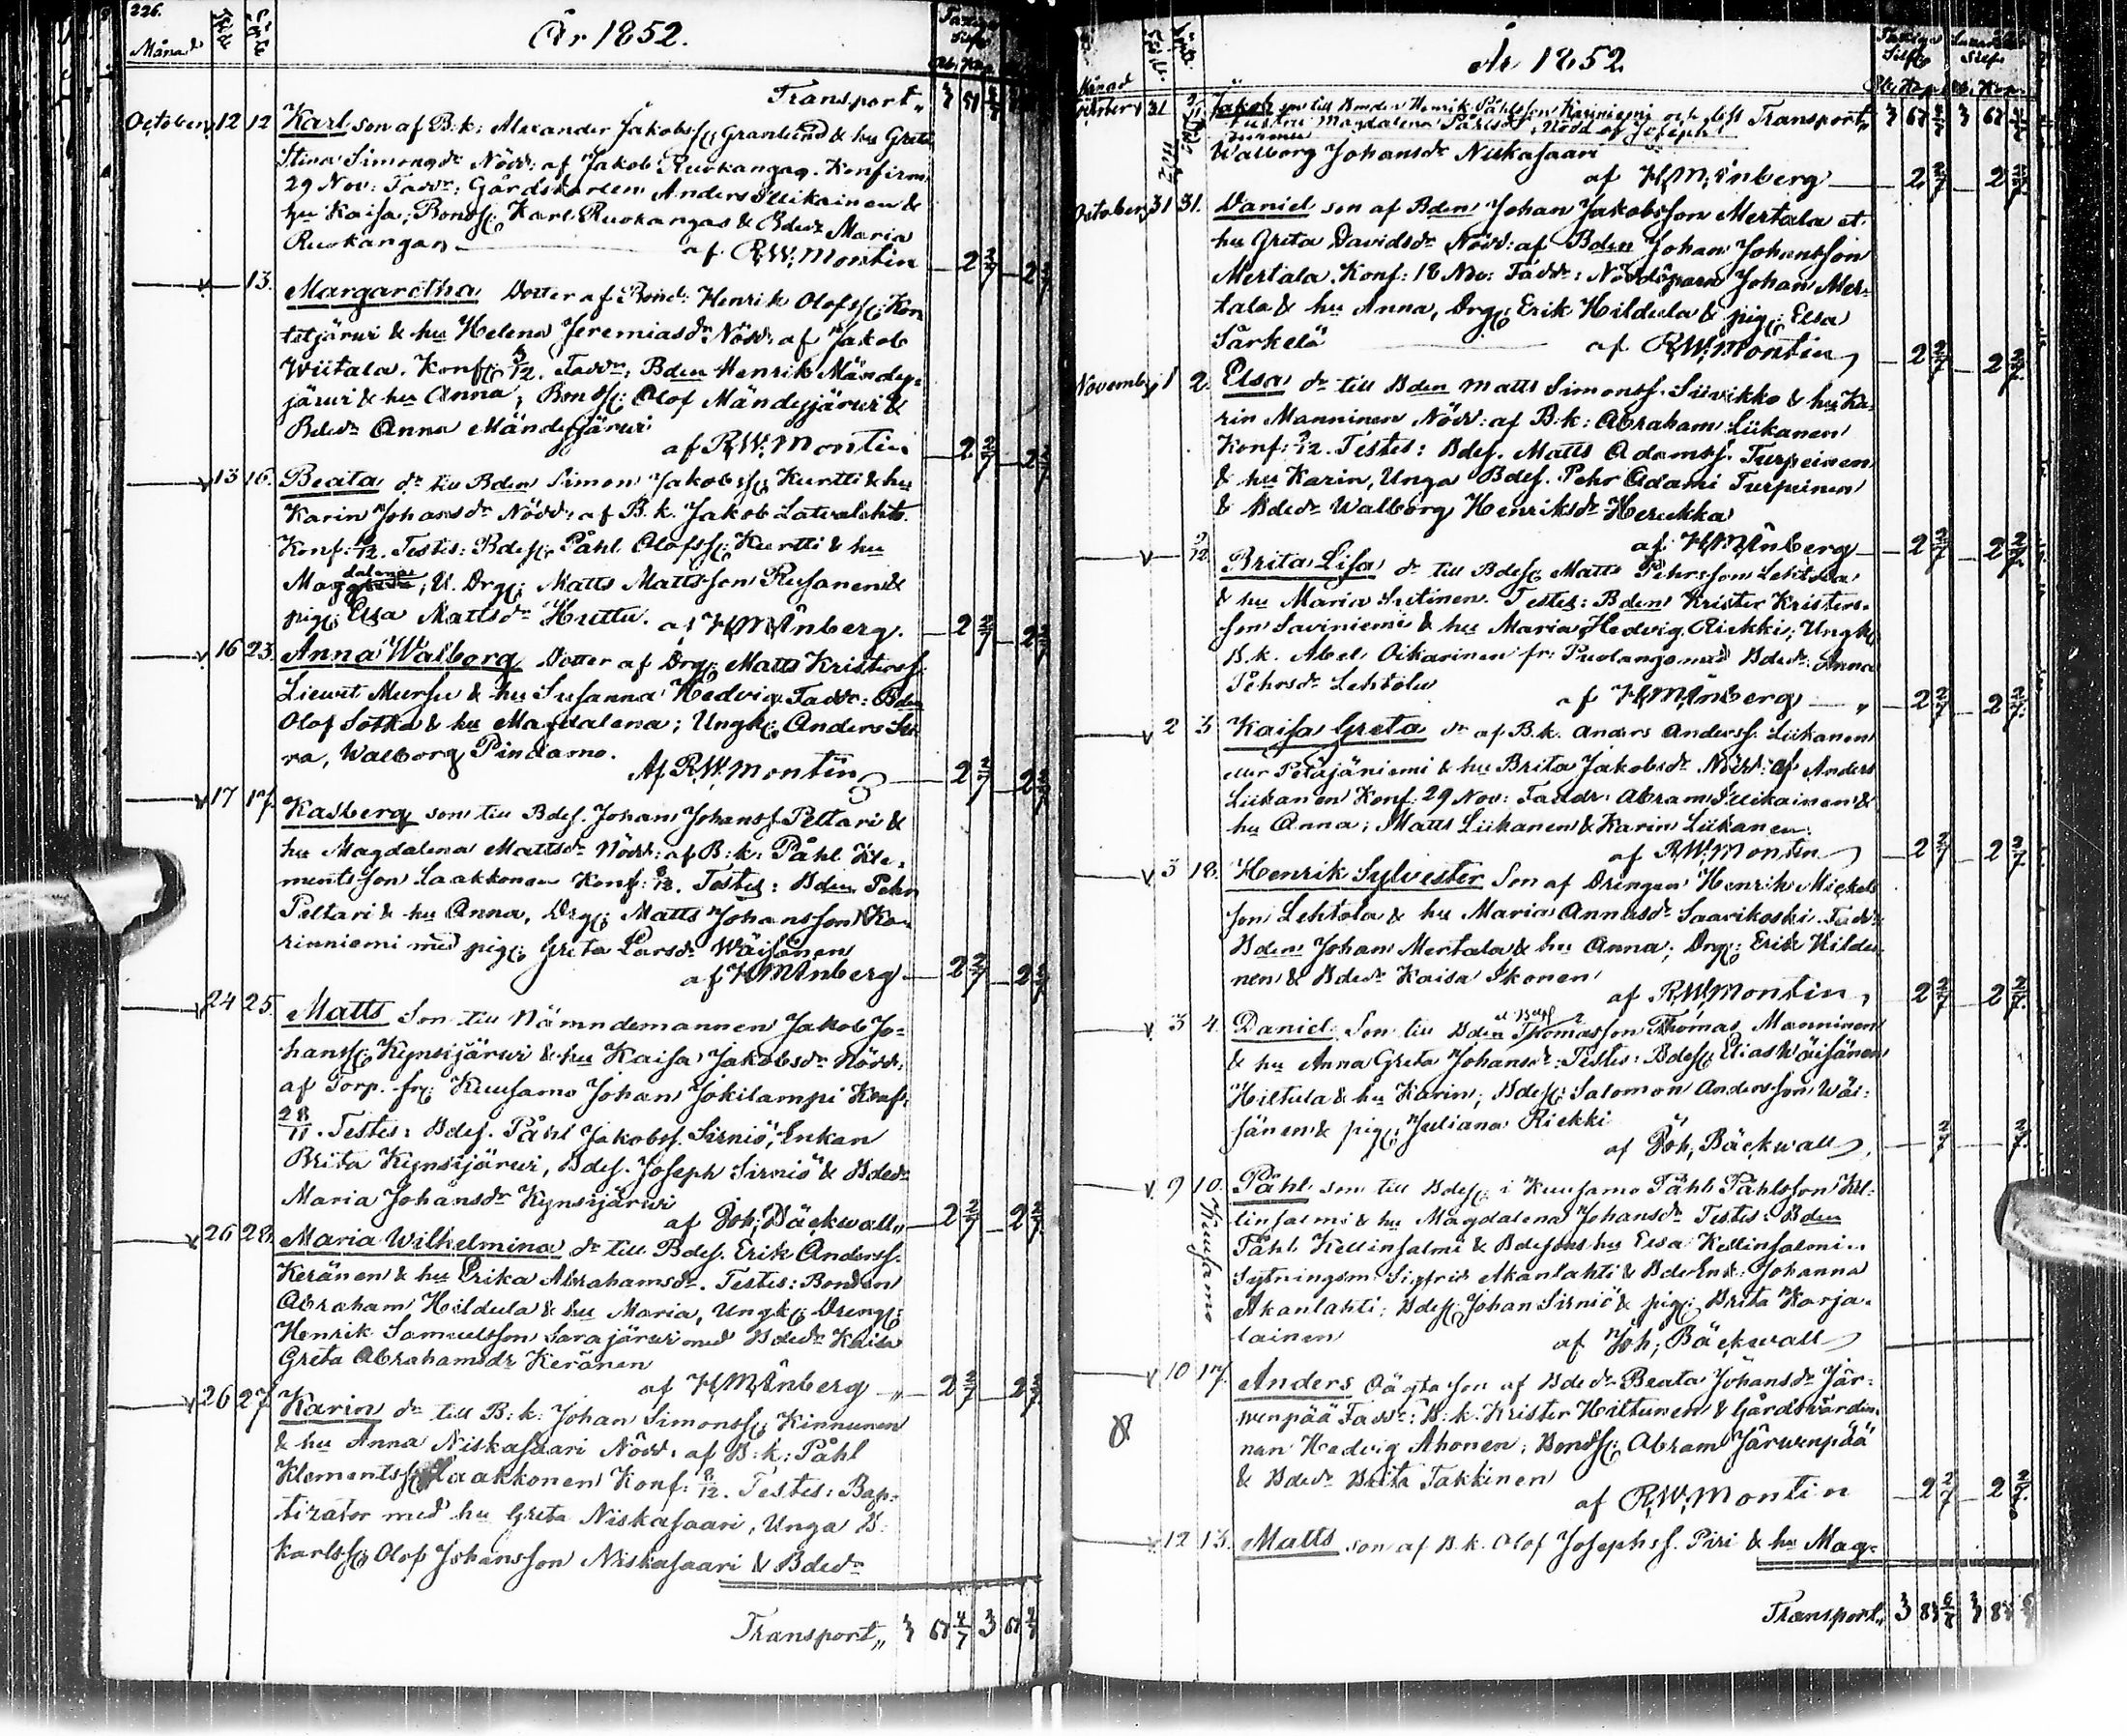 226.
År 1852.
Månad
Transport
October 12 12 Karl son af B:k: Alexander Jakobss: Granlund & hu Greta
Stina Simonsdr Nödd: af Jakob Ruokangas. Konfirm:
29 Nov: Faddr: Gårdskarlen Anders Mikainen &
hu Kaisa; Bonds: Karl Ruokangas & Bdedr Maria
Ruokangas af R.W. Montin 2 2/7 2 2/7
13. Margaretha Dotter af Bond: Henrik Olofss: Kon
titjärwi & hu Helena Jeremiasdr Nödd: af Jakob
Wiitala. Konf: 5/12. Faddr: Bden Henrik Mändy-
järwi & hu Anna; Bonds: Olof Mändyjärwi &
Bdedr Anna Mändyjärwi
af R.W. Montin 2 2/7 2 2/7
13 16. Beata dr till Bden Simon Jakobss: Kurtti & hu
Karin Johansdr Nödd: af B.k. Jakob Latvalehto.
Konf: /12. Testes: Bdes: Påhl Olofss: Kurtti & hu
Magdalena; U. Drg: Matts Mattsson Rusanen &
pig: Elsa Mattsdr Huttu. af H.M. Ånberg. 2 2/7 2 2/7
16 23. Anna Walborg Dotter af Drg: Matts Kristerss:
Lieurt Mursu & hu Susanna Hedvig. Faddr: Bden
Olof Sotka & hu Magdalena; Ungk: Anders Su
ra, Walborg Pindamo.
Af R.W. Montin 2 2/7 2 2/7
17 17. Kasberg son till Bdes. Johan Johanss Peltari &
hu Magdalena Mattsdr Nödd: af B:k: Påhl Kle-
mentsson Laakkonen Konf: 8/12. Testes: Bden Pehr
Peltari & hu Anna, Drg: Matts Johansson Ka-
rinniemi med pig: Greta Larsdr Wäisänen
af H.M. Ånberg 2 2/7 2 2/7
24 25. Matts Son till Nämndemannen Jakob Jo-
hanss: Kynsijärwi & hu Kaisa Jakobsdr Nödd:
af Torp. fr: Kuusamo Johan Jokilampi Konf:
28/11. Testes: Bdes. Påhl Jakobss. Sirniö, Enkan
Brita Kynsijärwi, Bdes. Joseph Sirniö & Bdedr
Maria Johansdr Kynsijärwi
af Joh: Bäckwall 2 2/7 2 2/7
26 28. Maria Wilhelmina dr till Bdes. Erik Anderss.
Keränen & hu Erika Abrahamsdr. Testes: Bonden
Abraham Hildula & hu Maria, Ungk: Dreng:
Henrik Samuelsson Sarajärwi med Bdedr Kaisa
Greta Abrahamsdr Keränen
af H.M. Ånberg 2 2/7 2 2/7
26 27. Karin dr till B:k: Johan Simonss: Kinnunen
& hu Anna Niskasaari Nödd: af B:k: Påhl
Klementss: Laakkonen Konf: 8/12. Testes: Bap-
tizator med hu Greta Niskasaari, Unga B:
karlss: Olof Johansson Niskasaari & Bdedr
Transport 3 67 4/7 3 67 4/7
År 1852
Månad
October 31 Jakob son till Bonden Henrik Påhlsson Karjniemi och dess Transport 3 67 4/7 3 67 4/7
hustru Magdalena Påhlsdr. Nödd af Joseph
Walborg Johansdr Niskasaari
af H.M. Ånberg 2 2/7 2 2/7
October 31 31. Daniel son af Bden Johan Jakobsson Mertala et.
hu Greta Davidsdr Nödd: af Bden Johan Johansson
Mertala. Konf: 18 Nov: Faddr: Nöddöparen Johan Mer-
tala & hu Anna, Drg: Erik Hildula & pig: Elsa
Särkelä af R.W. Montin 2 2/7 2 2/7
November 1 2. Elsa dr till Bden Matts Simonss. Siivikko & hu Ka-
rin Manninen Nödd: af B.k: Abraham Liikanen
Konf: /12. Testes: Bdes. Matts Adamss. Turpeinen
& hu Karin, Unga Bdes. Pehr Adami Turpeinen
& Bdedr Walborg Henriksdr Herukka
af H.M. Ånberg 2 2/7 2 2/7
Brita Lisa dr till Bdes: Matts Pehrsson Lehtola
& hu Maria Sutinen. Testes: Bden Krister Kristers-
son Saviniemi & hu Maria Hedvig Riekki; Ungk:
B.k. Abel Oikarinen fr: Puolango med Bdedr Anna
Pehrsdr Lehtola af H.M. Ånberg 2 2/7 2 2/7
2 3 Kaisa Greta dr af B.k. Anders Anderss. Liikanen
eller Petäjäniemi & hu Brita Jakobsdr Nödd: af Anders
Liikanen Konf: 29 Nov: Faddr: Abram Mikainen &
hu Anna; Matts Liikanen & Karin Liikanen.
af R.W. Montin 2 2/7 2 2/7
3 18. Henrik Sylvester Son af Drengen Henrik Mickels
son Lehtola & hu Maria Annasdr Saarikoski. Faddr:
Bden Johan Mertala & hu Anna; Drg: Erik Hildu
nen & Bdedr Kaisa Ikonen
af R.W. Montin 2 2/7 2 2/7
3 4. Daniel Son till Bden Thomasson Thomas Manninen
& hu Anna Greta Johansdr. Testes: Bdes: Elias Wäisänen
Hiltula & hu Karin; Bdes: Salomon Andersson Wäi-
sänen & pig: Juliana Riekki
af Joh: Bäckwall 2/7 2/7
9 10. Påhl son till Bdes: i Kuusamo Påhl Påhlsson Kel-
linsalmi & hu Magdalena Johansdr Testes: Bden
Påhl Kellinsalmi & Bdesons hu Elsa Kellinsalmi.
Sytningsm: Sigfrid Akanlahti & BdeEnk: Johanna
Akanlahti; Bdes: Johan Sirniö & pig: Brita Karja-
lainen af Joh: Bäckwall
Kuusamo
10 17. Anders Oägta son af Bdedr Beata Johansdr Jär-
wenpää Faddr: B.k. Krister Hiltunen & Gårdsvärdin-
nan Hedvig Ahonen; Bonds: Abram Järwenpää
& Bdedr Brita Takkinen
af R.W. Montin 2 2/7 2 2/7
12 13. Matts son af B.k. Olof Josephss. Piri & hu Mag-
Transport